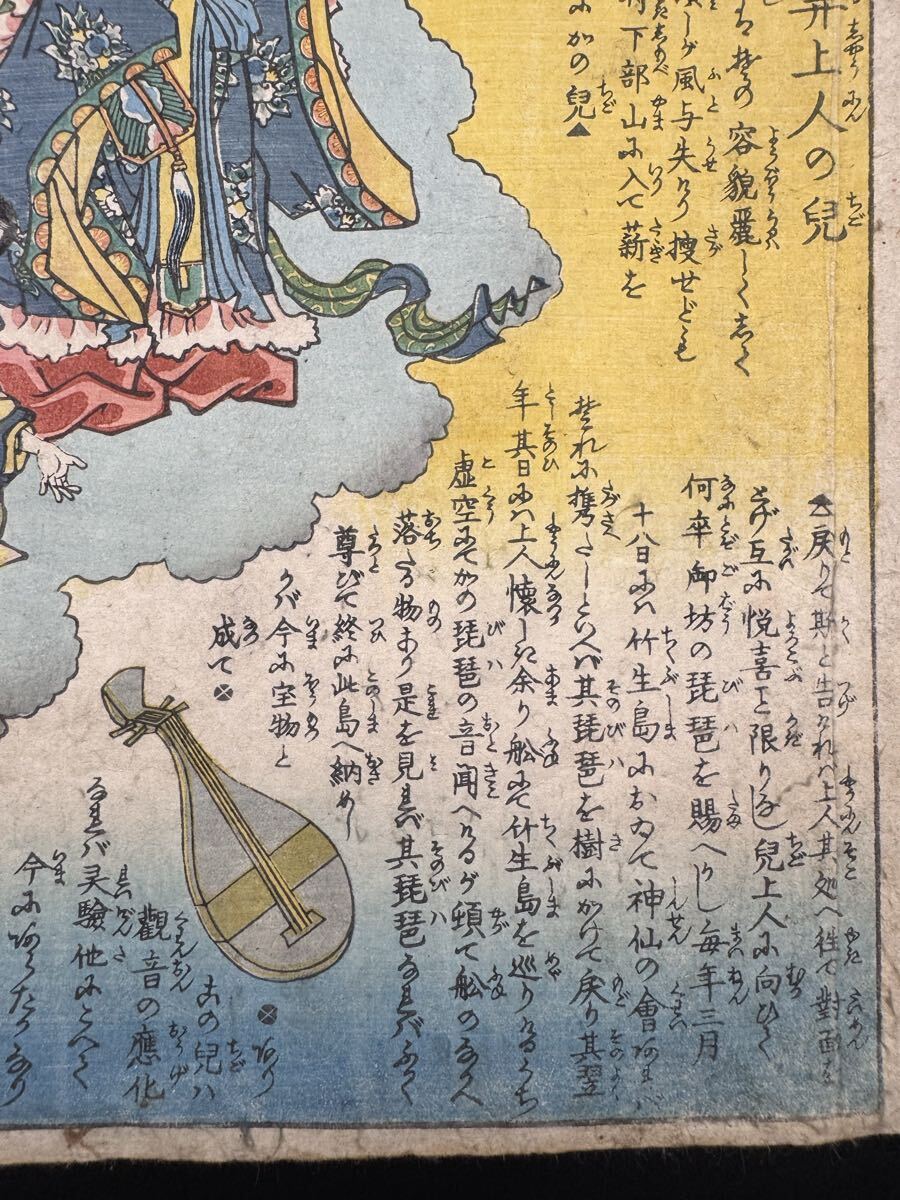 井上人の兒
容貌麗しく
風与失けり捜せども
下部山に入て薪を
かの兒▲
▲戻りて斯と告ければ上人其処へ往て對面を
とげ互に悦喜こと限りなし兒上人に向ひて
何卒御坊の琵琶を賜へかし毎年三月
十八日には竹生島において神仙の會あれば
それに携たしといへば其琵琶を樹にかけて戻り其翌
年其日には上人懐しさ余り舩にて竹生島を巡りけるうち
虚空にてかの琵琶の音聞へけるが頓て舩のなかへ
落たる物あり是を見れば其琵琶なればふかく
尊びて終に此島へ納めし
かば今に宝物と
成て⊗
⊗あり
この兒は
觀音の應化
なれば灵驗他にことへて
今にあらたかなり